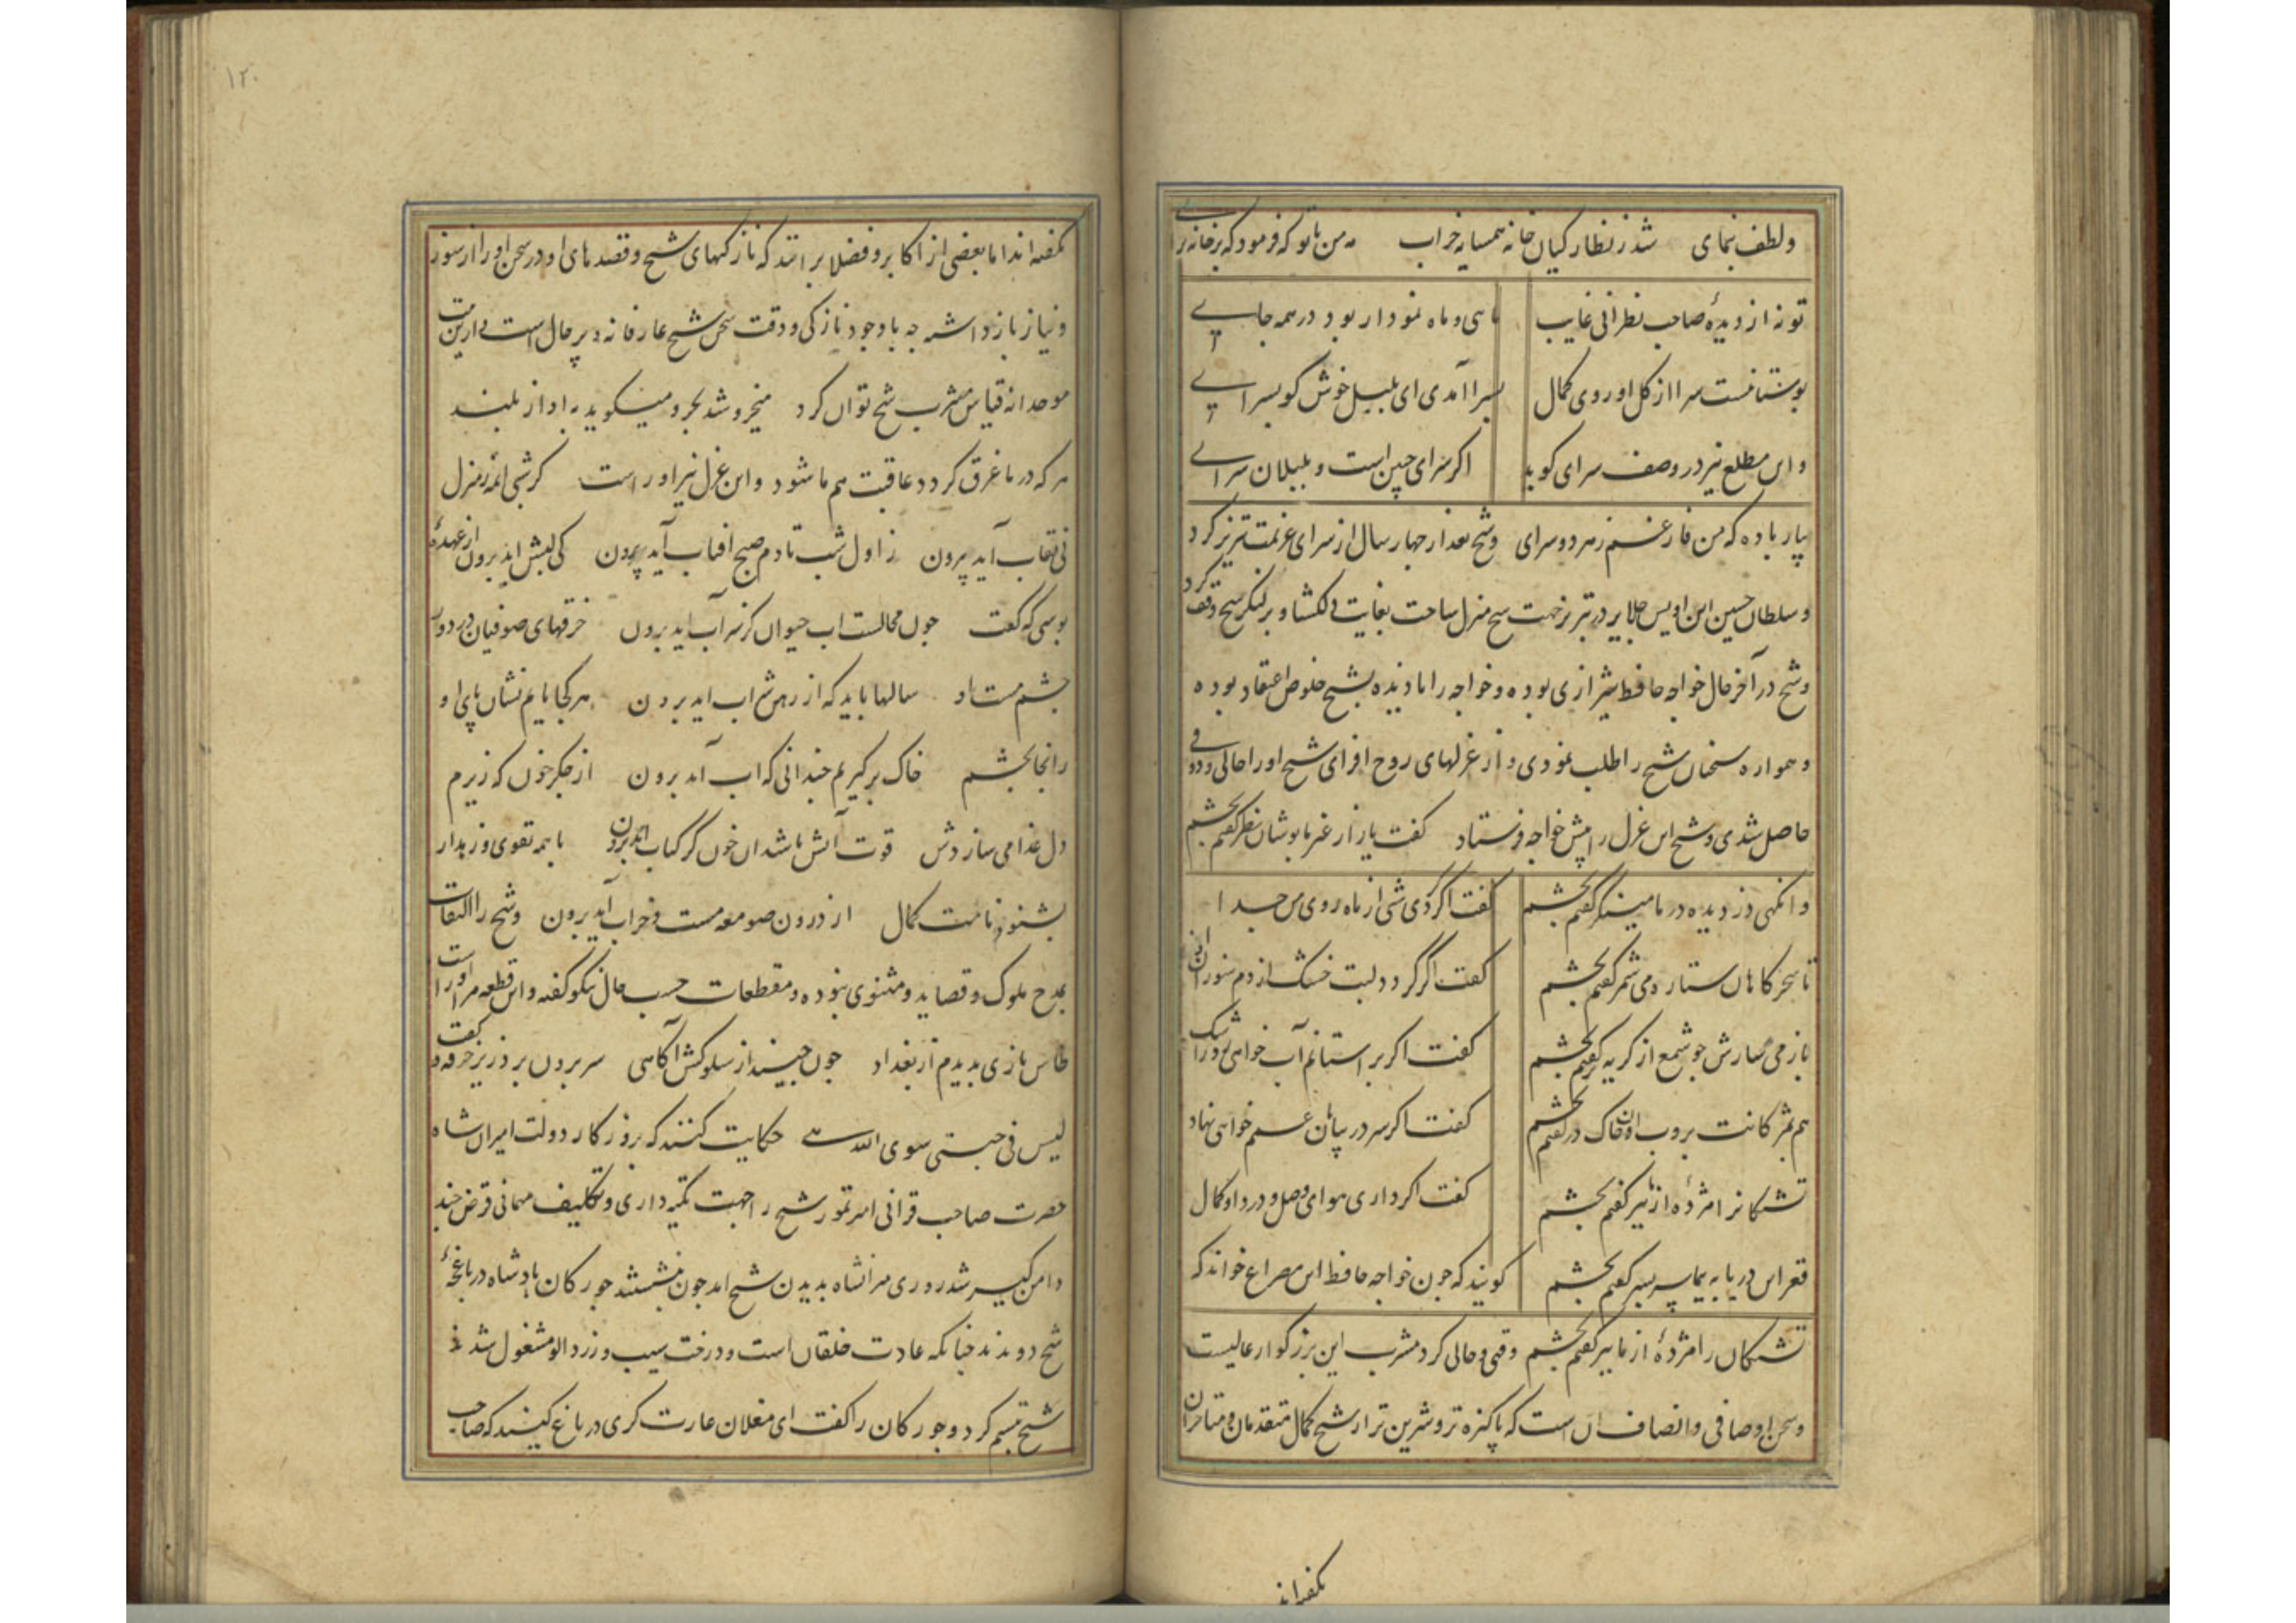 ولطف نمای شد ز نظارکیان خانه همسایه خراب مه من با تو که فرمود که بر خانه برآی
تو نه از دیدهٔ صاحب نظرانی غایب ماهی و ماه نمودار بود در همه جایے
بوستانست سرا از کل و روی کمال بسرا آمدی ای بلبل خوش کو بسرایے
و این مطلع نیز در وصف سرای کوید اکر سرای چنین است و بلبلان سرایے
بیار باده که من فارغم ز هر دو سرای وشیخ بعد از جهار سال از سرای عزیمت تبریز کرد
و سلطان حسین ابن اویس جلایر در تبریز جهت شیخ منزل ساخت بغایت دلکشا و بر لنکر شیخ وقف کرد
وشیخ در آخر حال خواجه حافظ شیرازی بوده و خواجه را نادیده بشیخ خلوص اعتقاد بوده
و همواره سخنان شیخ را طلب نمودی و از غزلهای روح افزای شیخ او را حالی و ذوقی
حاصل شدی و شیخ این غزل را پیش خواجه فرستاد کفت یار از غیر ما پوشان نظر کفتم بچشم
وانکهی دزدیده در ما مینکر کفتم بچشم کفت اکر کردی شبی از ماه روی من جدا
تا سحرکاهان ستاره می شمر کفتم بچشم کفت اکر کردد لبت خشک از دم سوزان
باز می سازش جو شمع از کریه تر کفتم بچشم کفت اکر بر آستانم آب خواهی زد ز اشک
هم بمژکانت بروب آن خاک در کفتم بچشم کفت اکر سر در بیابان غمم خواهی نهاد
تشنکانرا مژدهٔ از ما ببر کفتم بچشم کفت اکر داری هوای وصل و درد او کمال
قعر این دریا به پیما سر بسر کفتم بچشم کویند که جون خواجه حافظ این مصراع خواند که
تشنکان را مژدهٔ از ما ببر کفتم بچشم وقتی و حالی کرد مشرب این بزرکوار عالیست
و سخن او صافی و انصاف آن است که پاکیزه تر و شیرین تر از شیخ کمال متقدمان و متاخران
نکفته اند
۱۲۰
نکفته اند اما بعضی از اکابر و فضلا برانند که نازکیهای شیخ و قصدهای او در سخن او را از سوز
و نیاز باز داشته جه با وجود نازکی و دقت سخن شیخ عارفانه و پر حال است و از این بیت
موحدانه قیاس مشرب شیخ توان کرد میخروشد بحر و میکوید به آواز بلند
هر که در ما غرق کردد عاقبت هم ما شود و این غزل نیز او راست کر شبی آن مه ز منزل
بی نقاب آید برون ز اول شب تا دم صبح آفتاب آید برون کی لبش آید برون از عهدهٔ
بوسی که کفت جون محالست اب حیوان کز سراب اید برون خرقهای صوفیان در دور
چشم مست او سالها باید که از رهن شراب اید برون هر کجا یابم نشان پای او
رانجا بچشم خاک برکیرم جندانی که اب آید برون از جکر خون که ریزم
دل غذا می سازدش قوت آتش باشد ان خون کز کباب اید برون با همه تقوی و زهد ار
بشنود نامت کمال از درون صومعه مست و خراب آید برون وشیخ را التفات
بمدح ملوک و قصاید و مثنوی نبوده و مقطعات حسب حال نیکو کفته و این قطعه مر او راست
طاس بازی بدیدم از بغداد جون جنید از سلوکش آکاهی سر برون برد زیر خرقه و کفت
لیس فی جبتی سوی اللهے حکایت کنند که بروزکار دولت امیران شاه
حضرت صاحب قرانی امیر تیمور شیخ را جهت تکیه داری و تکلیف مهمانی قرض جند
دامن کیر شد روزی میرانشاه بدیدن شیخ امد جون بنشستند جورکان پادشاه در باغجهٔ
شیخ دویدند جنانکه عادت خلقان است و درخت سیب و زردالو مشغول شدند
شیخ تبسم کرد و جورکان را کفت ای مغلان غارت کری در باغ کنید که صاحب